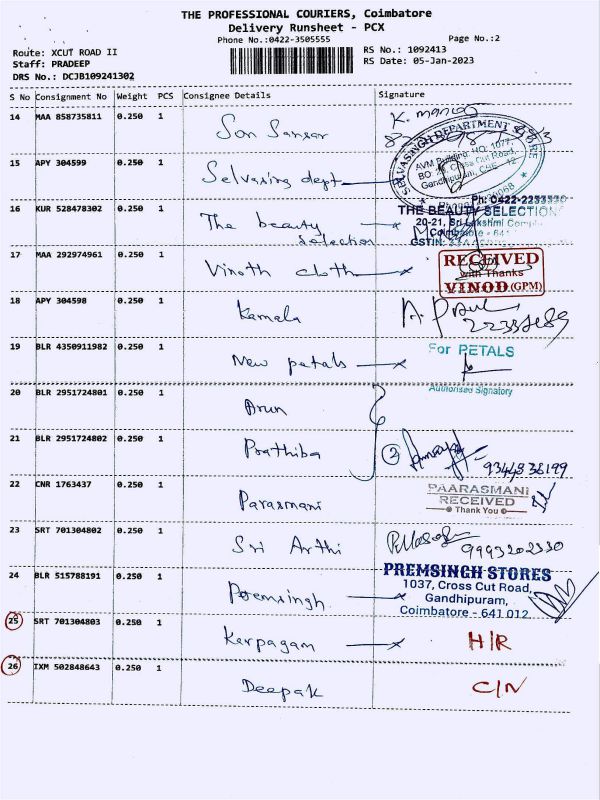 THE PROFESSIONAL COURIERS, Coimbatore
Delivery Runsheet - PCX
Phone No.:0422-3505555
Page No.:2
Route: XCUT ROAD II
Staff: PRADEEP
DRS No.: DCJB109241302
RS No.: 1092413
RS Date: 05-Jan-2023
S No Consignment No Weight PCS Consignee Details Signature
14 MAA 858735811 0.250 1 Son Sansar K. manoj
15 APY 304599 0.250 1 Selvasing dept
SELVASINGH DEPARTMENT STORE
AVM Building, NO: 1077,
Cross Cut Road,
Gandhipuram, CBE - 12
16 KUR 528478302 0.250 1 The beauty selection
Ph: 0422-2233330
THE BEAUTY SELECTION
20-21, Sri Lakshmi
Coimbatore - 641
GSTIN:
17 MAA 292974961 0.250 1 Vinoth cloth
RECEIVED
with Thanks
VINOD (GPM)
18 APY 304598 0.250 1 Kamala
19 BLR 4350911982 0.250 1 New petals
For PETALS
Authorised Signatory
20 BLR 2951724801 0.250 1 Arun
21 BLR 2951724802 0.250 1 Prathiba 2
22 CNR 1763437 0.250 1 Parasmani
PAARASMANI
RECEIVED
Thank You
23 SRT 701304802 0.250 1 Sri Arthi
24 BLR 515788191 0.250 1 Poemsingh
PREMSINGH STORES
1037, Cross Cut Road,
Gandhipuram,
Coimbatore - 641 012
25 SRT 701304803 0.250 1 Karpagam H/R
26 IXM 502848643 0.250 1 Deepak C/N